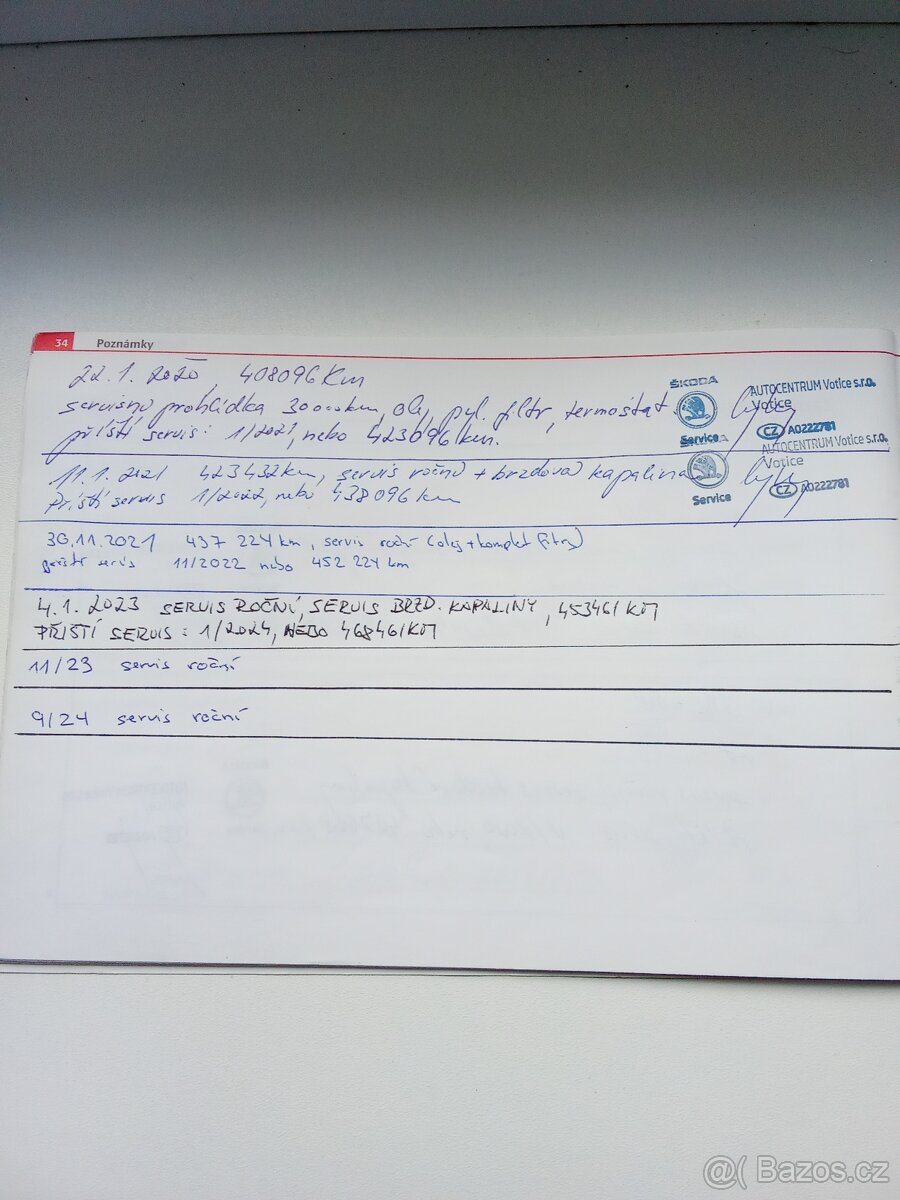 34 Poznámky
22.1. 2020, 408096 Km
servisní prohlídka 30000km, olej, pyl. filtr, termostat
příští servis: 1/2021, nebo 423096 km.
ŠKODA
Service
AUTOCENTRUM Votice s.r.o.
Votice
CZ A0222781
11.1. 2021 423432km, servis roční + brzdová kapalina
Příští servis 1/2022, nebo 438096 km
Service
AUTOCENTRUM Votice s.r.o.
Votice
CZ A0222781
30.11.2021 437 224 km, servis roční (olej + komplet filtry)
příští servis 11/2022 nebo 452 224 km
4.1. 2023 SERVIS ROČNÍ, SERVIS BRZD. KAPALINY, 453461 KM
PŘÍŠTÍ SERVIS: 1/2024, NEBO 468461 KM
11/23 servis roční
9/24 servis roční
@( Bazos.cz